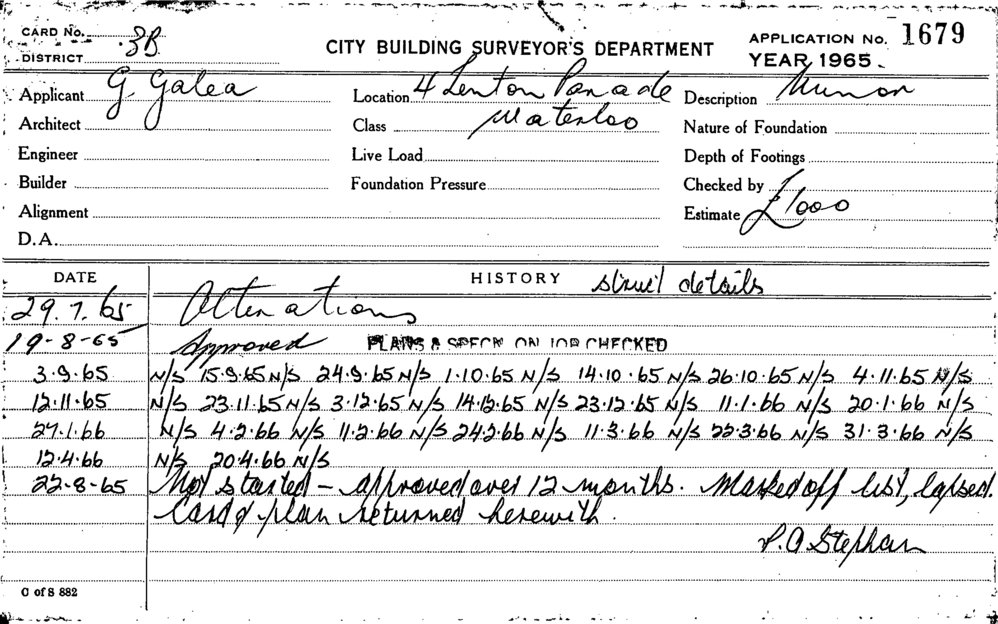 CARD No.
DISTRICT 3B
CITY BUILDING SURVEYOR'S DEPARTMENT
APPLICATION No. 1679
YEAR 1965
Applicant G. Galea
Location 4 Lenton Parade
Waterloo
Description Minor
Architect
Class
Nature of Foundation
Engineer
Live Load
Depth of Footings
Builder
Foundation Pressure
Checked by
Alignment
Estimate £1000
D.A.
DATE HISTORY struc'l details
29.7.65 Alterations
19-8-65 Approved PLANS & SPECN ON JOB CHECKED
3.9.65 N/S 15.9.65 N/S 24.9.65 N/S 1.10.65 N/S 14.10.65 N/S 26.10.65 N/S 4.11.65 N/S
12.11.65 N/S 23.11.65 N/S 3.12.65 N/S 14.12.65 N/S 23.12.65 N/S 11.1.66 N/S 20.1.66 N/S
27.1.66 N/S 4.2.66 N/S 11.2.66 N/S 24.2.66 N/S 11.3.66 N/S 22.3.66 N/S 31.3.66 N/S
12.4.66 N/S 20.4.66 N/S
22-8-65 Not started - approved over 12 months. Marked off list, lapsed.
Card & plan returned herewith.
P.A Stephan
C of S 882